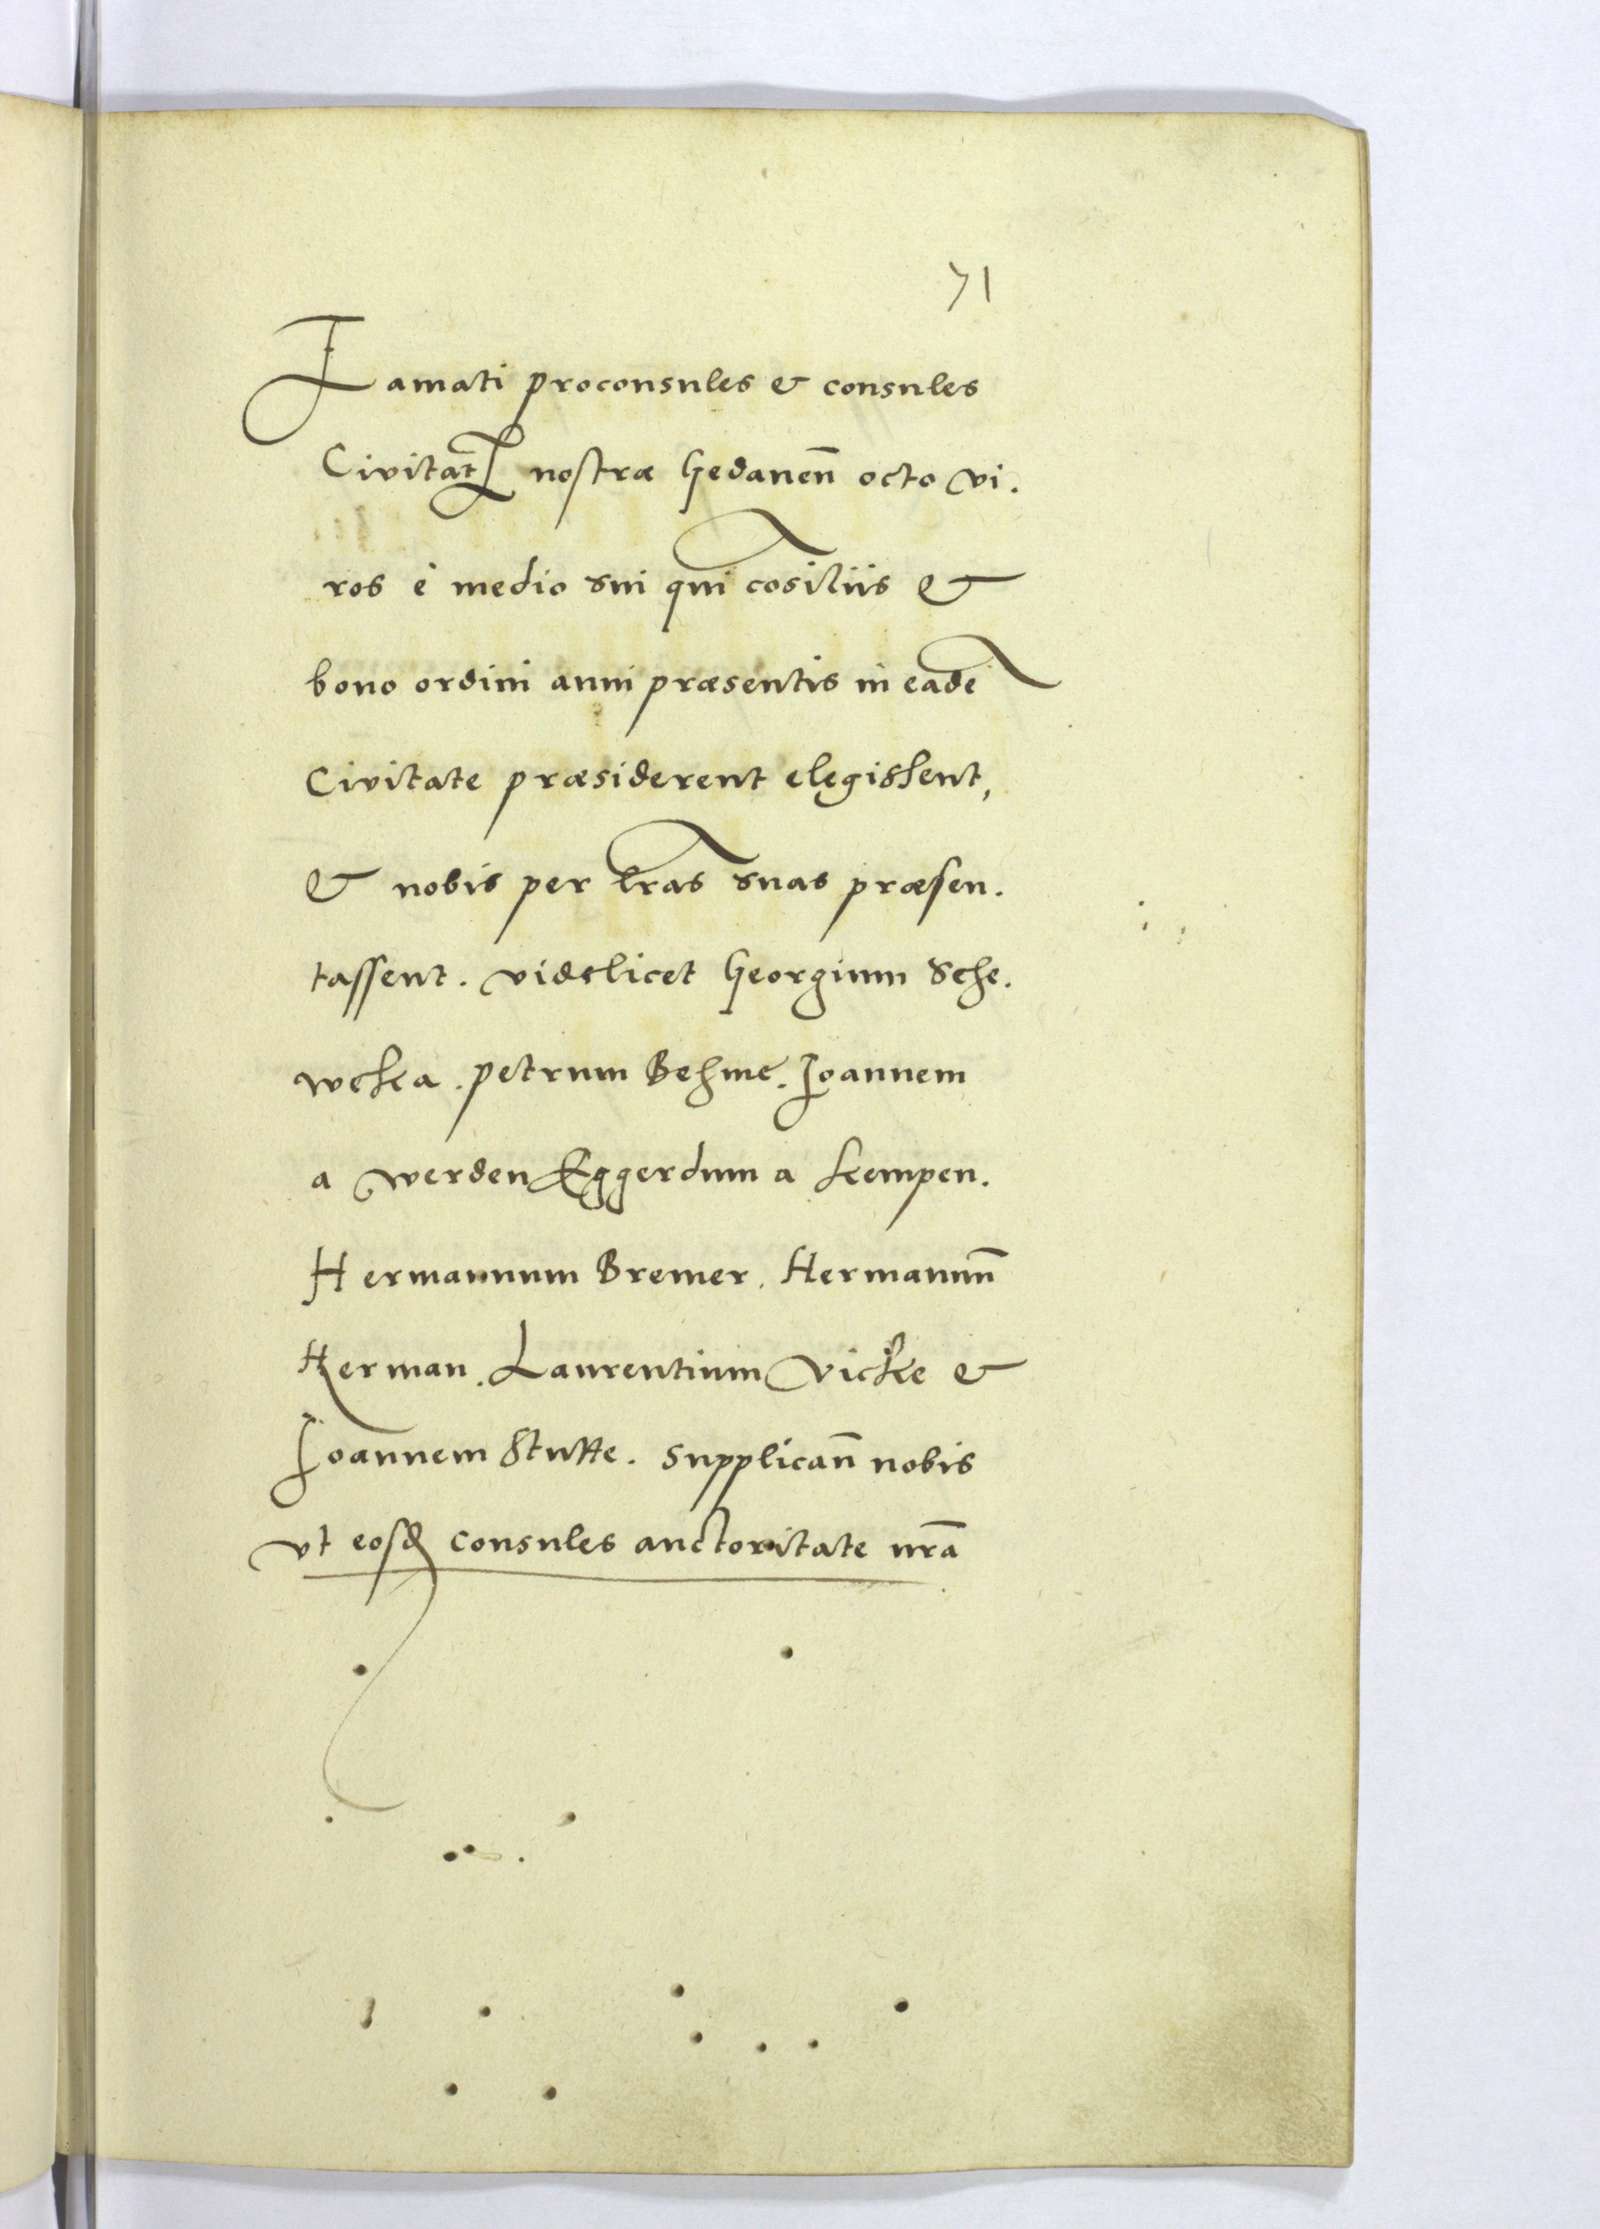 71
Famati proconsules & consules
Civitatꝭ nostræ Gedaneñ octo vi.
ros è medio sui qui cōsiliis &
bono ordini anni præsentis in eadē
Civitate præsiderent elegissent,
& nobis per lr̄as suas præsen.
tassent. videlicet Georgium Sche.
weka. petrum Behme. Joannem
a werden Eggerdum a kempen.
Hermannum Bremer. Hermannū
Herman. Laurentium vicke &
Joannem Stutte. Supplicañ nobis
vt eosd consules auctoritate nr̄a